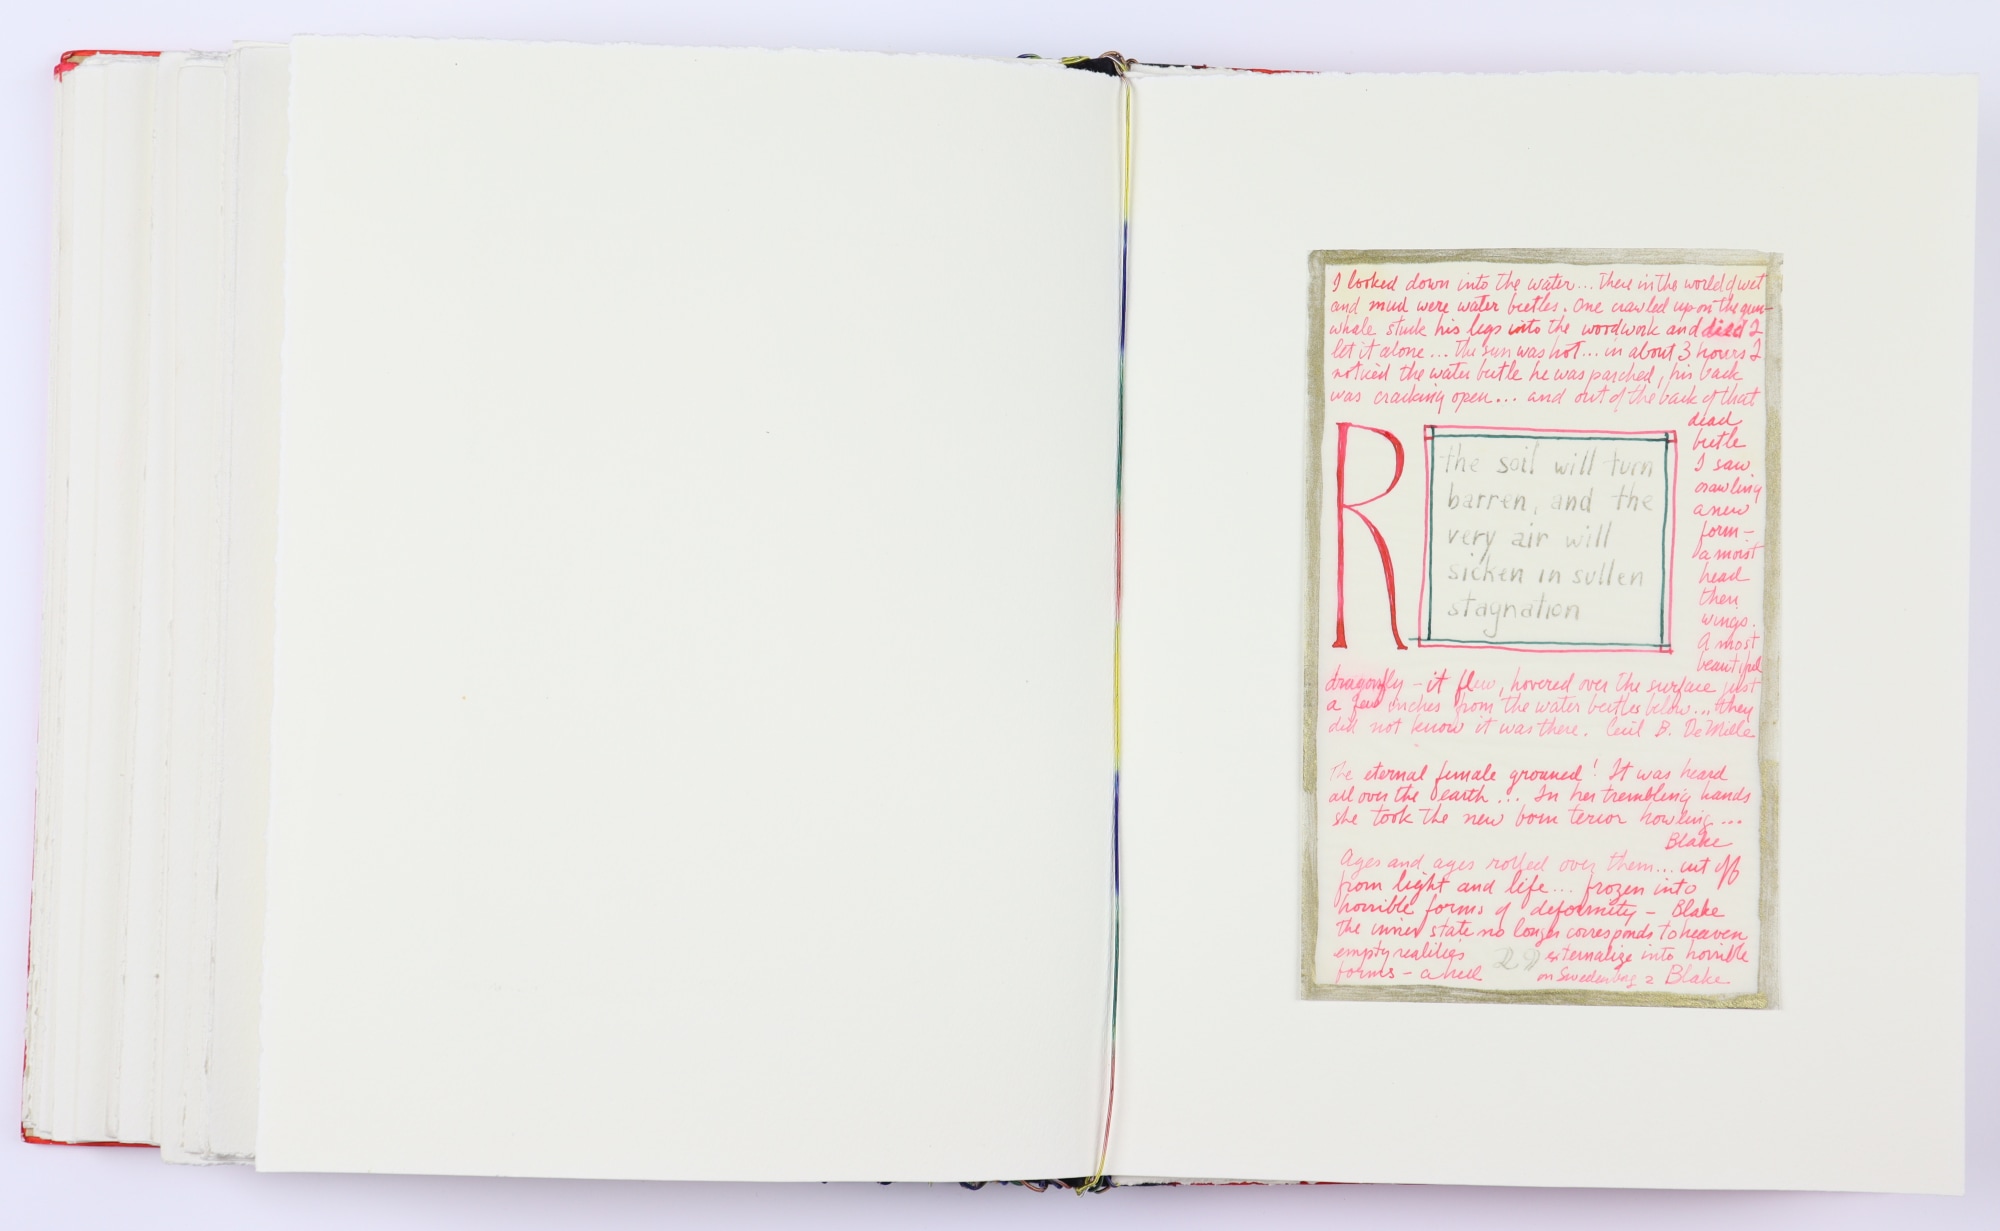 I looked down into the water... there in the world of wet
and mud were water beetles. One crawled up on the gun-
whale stuck his legs into the woodwork and died I
let it alone... the sun was hot... in about 3 hours I
noticed the water beetle he was parched, his back
was cracking open... and out of the back of that
dead
beetle
I saw
crawling
a new
form –
a moist
head
then
wings.
A most
beautiful
R
the soil will turn
barren, and the
very air will
sicken in sullen
stagnation
dragonfly – it flew, hovered over the surface just
a few inches from the water beetles below... they
did not know it was there. Cecil B. DeMille
The eternal female groaned! It was heard
all over the earth... In her trembling hands
she took the new born terror howling...
Blake
Ages and ages rolled over them... cut off
from light and life... frozen into
horrible forms of deformity – Blake
The inner state no longer corresponds to heaven
empty realities externalize into horrible
forms – a hell on Swedenborg & Blake